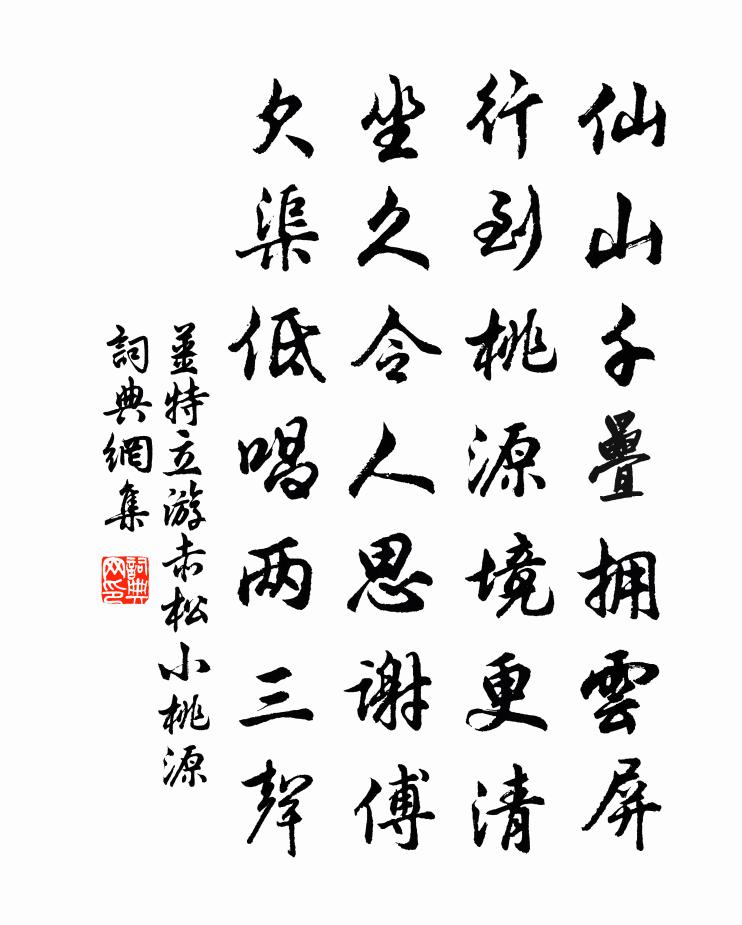 仙山千疊擁雲屏
行到桃源境更清
坐久令人思謝傅
欠渠低唱两三聲
姜特立游赤松小桃源
詞典網集
詞典
网印